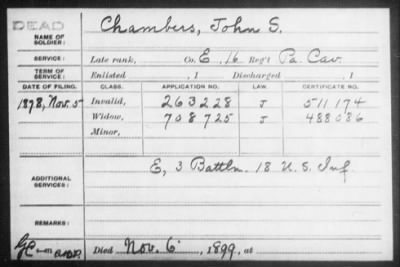 DEAD
NAME OF SOLDIER: Chambers, John S.
SERVICE: Late rank, Co. E, 16 Reg't Pa. Cav.
TERM OF SERVICE: Enlisted , 1 Discharged , 1
DATE OF FILING. CLASS. APPLICATION NO. LAW. CERTIFICATE NO.
1878, Nov. 5 Invalid, 263228 J 511174
Widow, 708725 J 488086
Minor,
ADDITIONAL SERVICES: E, 3 Battln. 18 U. S. Inf
REMARKS:
Died Nov. 6, 1899, at